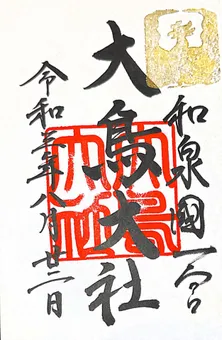 和泉國一宮
大鳥大社
令和三年八月廿二日